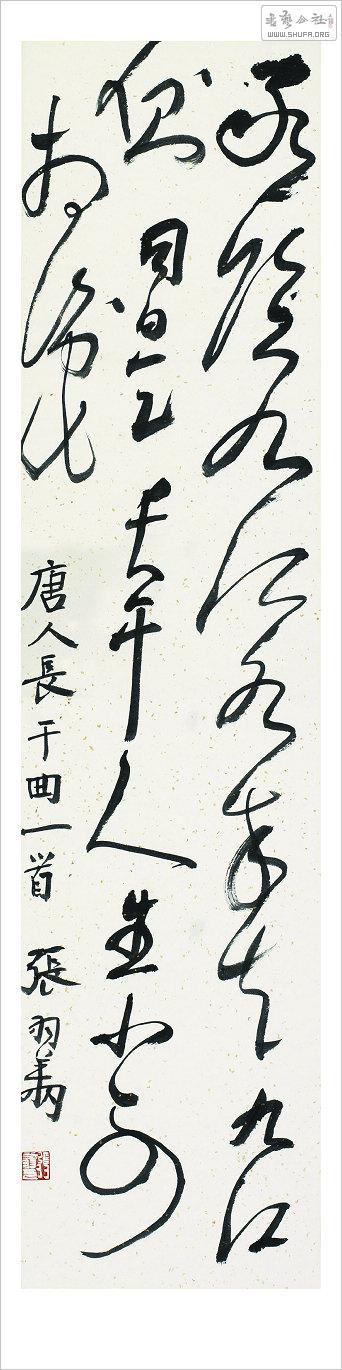 書藝公社
WWW.SHUFA.ORG
家臨九江水來去九江
側同是長干人生小不
相識
唐人長干曲一首 張羽翔